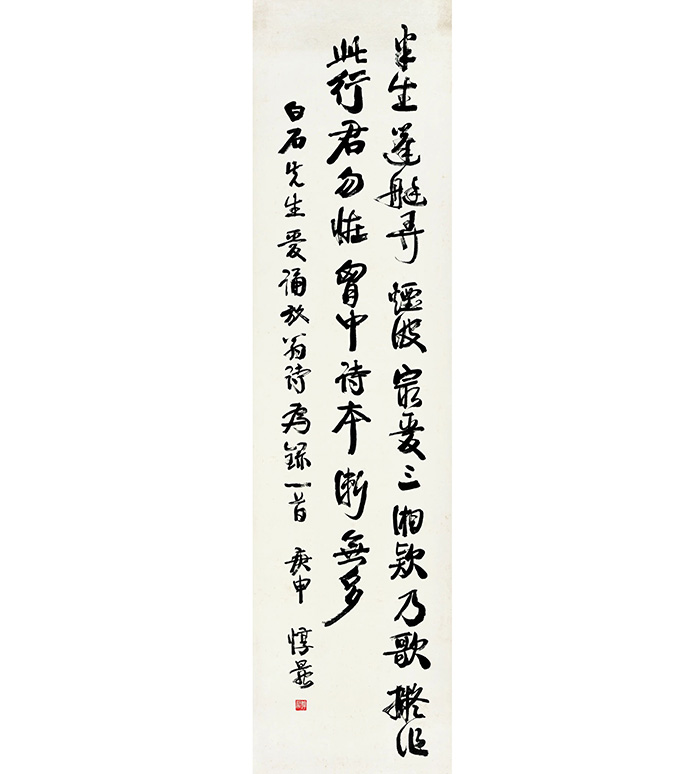 半生篷艇弄煙波最愛三湘欸乃歌擬作
此行君勿怪胷中詩本漸無多
白石先生愛誦放翁詩為錄一首 庚申 惇